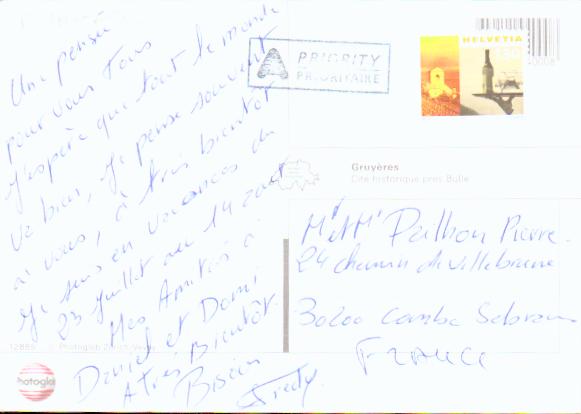 Une pensée
pour vous Tous
J'espère que tout le monde
va bien, Je pense souvent
à vous, à très bientôt
Je suis en vacances du
23 Juillet au 14 août
Mes Amitiés à
Daniel et Domi
A très Bientôt.
Fredy
12885 © Photoglob Zürich-Vevey
Photoglob
A PRIORITY
PRIORITAIRE
HELVETIA
Gruyères
Cité historique près Bulle
M et Mme Palhon Pierre
24 chemin de Villebrune
30200 Combe Sabran
FRANCE